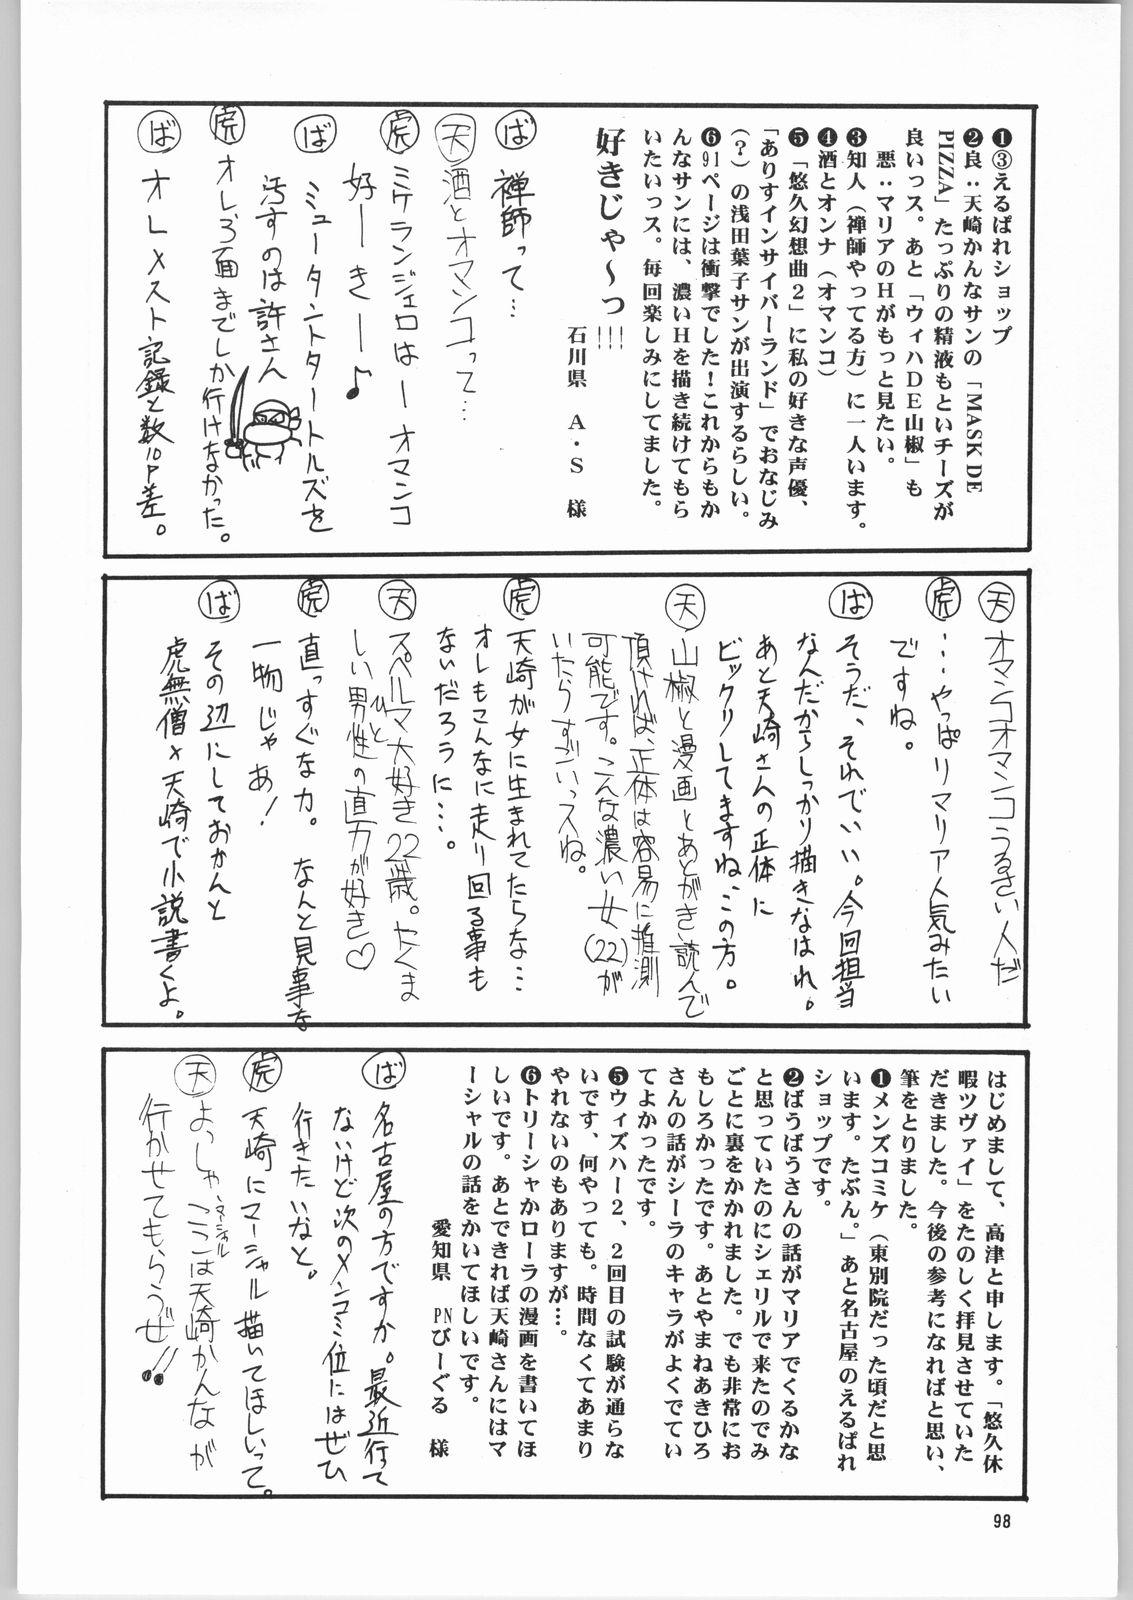 ❶③えるぱれショップ
❷良：天崎かんなサンの「MASK DE
PIZZA」たっぷりの精液もといチーズが
良いっス。あと「ウィハDE山椒」も
悪：マリアのHがもっと見たい。
❸知人（禅師やってる方）に一人います。
❹酒とオンナ（オマンコ）
❺「悠久幻想曲2」に私の好きな声優、
「ありすインサイバーランド」でおなじみ
（？）の浅田葉子サンが出演するらしい。
❻91ページは衝撃でした！これからもか
んなサンには、濃いHを描き続けてもら
いたいっス。毎回楽しみにしてました。
好きじゃ～っ!!!
石川県　A・S　様
ば 禅師って…
天 酒とオマンコって…
虎 ミケランジェロはーオマンコ
好ーきー♪
ば ミュータントタートルズを
汚すのは許さん
虎 オレろ面までしか行けなかった。
ば オレ×スト記録と数10P差。
天 オマンコオマンコうるさい人だ
虎 …やっぱリマリア人気みたい
ですね。
ば そうだ、それでいい。今回担当
なんだからしっかり描きなはれ。
あと天崎さんの正体に
ビックリしてますね、この方。
天 山椒と漫画とあとがき読んで
頂ければ、正体は容易に推測
可能です。こんな濃い女(22)が
いたらすごいっスね。
虎 天崎が女に生まれてたらな…
オレもこんなに走り回る事も
ないだろうに…。
天 スペルマ大好き22歳。たくま
しい男性の直力が好き♡
ひと
虎 直っすぐな力。なんと見事な
一物じゃあ！
ば その辺にしておかんと
虎無僧×天崎で小説書くよ。
はじめまして、高津と申します。「悠久休
暇ツヴァイ」をたのしく拝見させていた
だきました。今後の参考になればと思い、
筆をとりました。
❶メンズコミケ（東別院だった頃だと思
います。たぶん。」あと名古屋のえるぱれ
ショップです。
❷ばうばうさんの話がマリアでくるかな
と思っていたのにシェリルで来たのでみ
ごとに裏をかかれました。でも非常にお
もしろかったです。あとやまねあきひろ
さんの話がシーラのキャラがよくでてい
てよかったです。
❺ウィズハー2、2回目の試験が通らな
いです、何やっても。時間なくてあまり
やれないのもありますが…。
❻トリーシャかローラの漫画を書いてほ
しいです。あとできれば天崎さんにはマ
ーシャルの話をかいてほしいです。
愛知県　PNびーぐる　様
ば 名古屋の方ですか。最近行って
ないけど次のメンコミ位にはぜひ
行きたいなと。
虎 天崎にマーシャル描いてほしいって。
天 よっしゃ、ここは天崎かんなが
マーシャル
行かせてもらうぜ!!
98